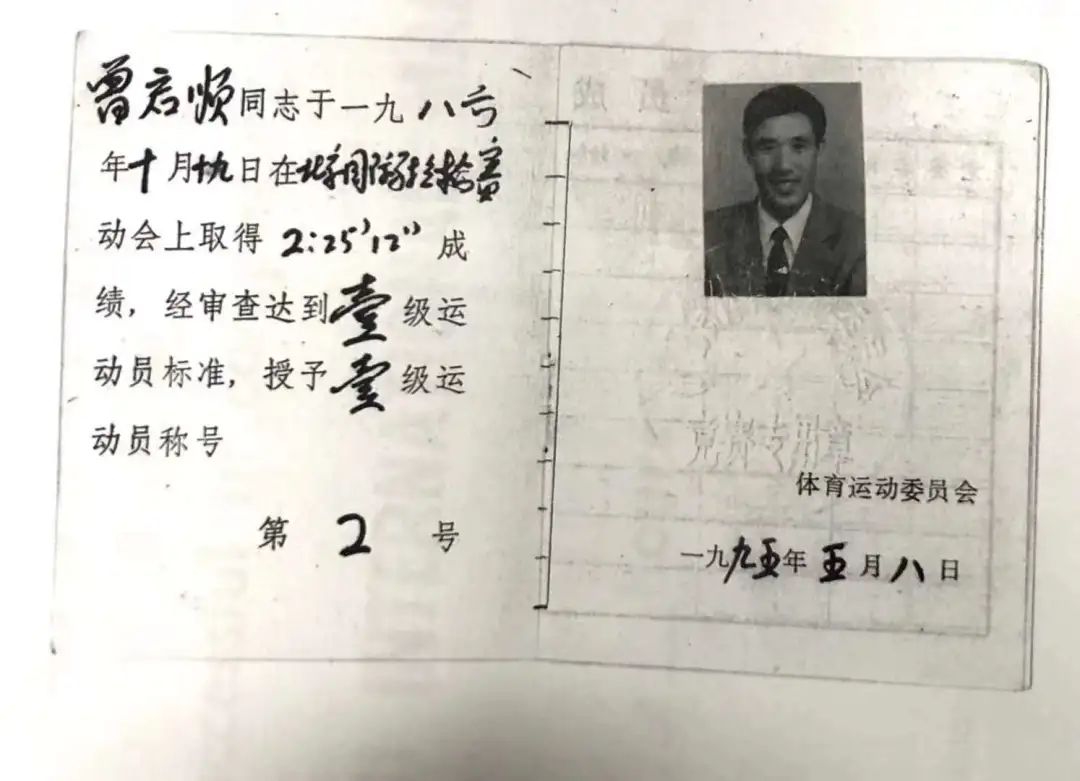 曾启顺同志于一九八六
年十月十九日在北京国际马拉松赛
动会上取得 2:25′12″ 成
绩，经审查达到壹级运
动员标准，授予壹级运
动员称号
第 2 号
竞赛专用章
体育运动委员会
一九九五年五月八日